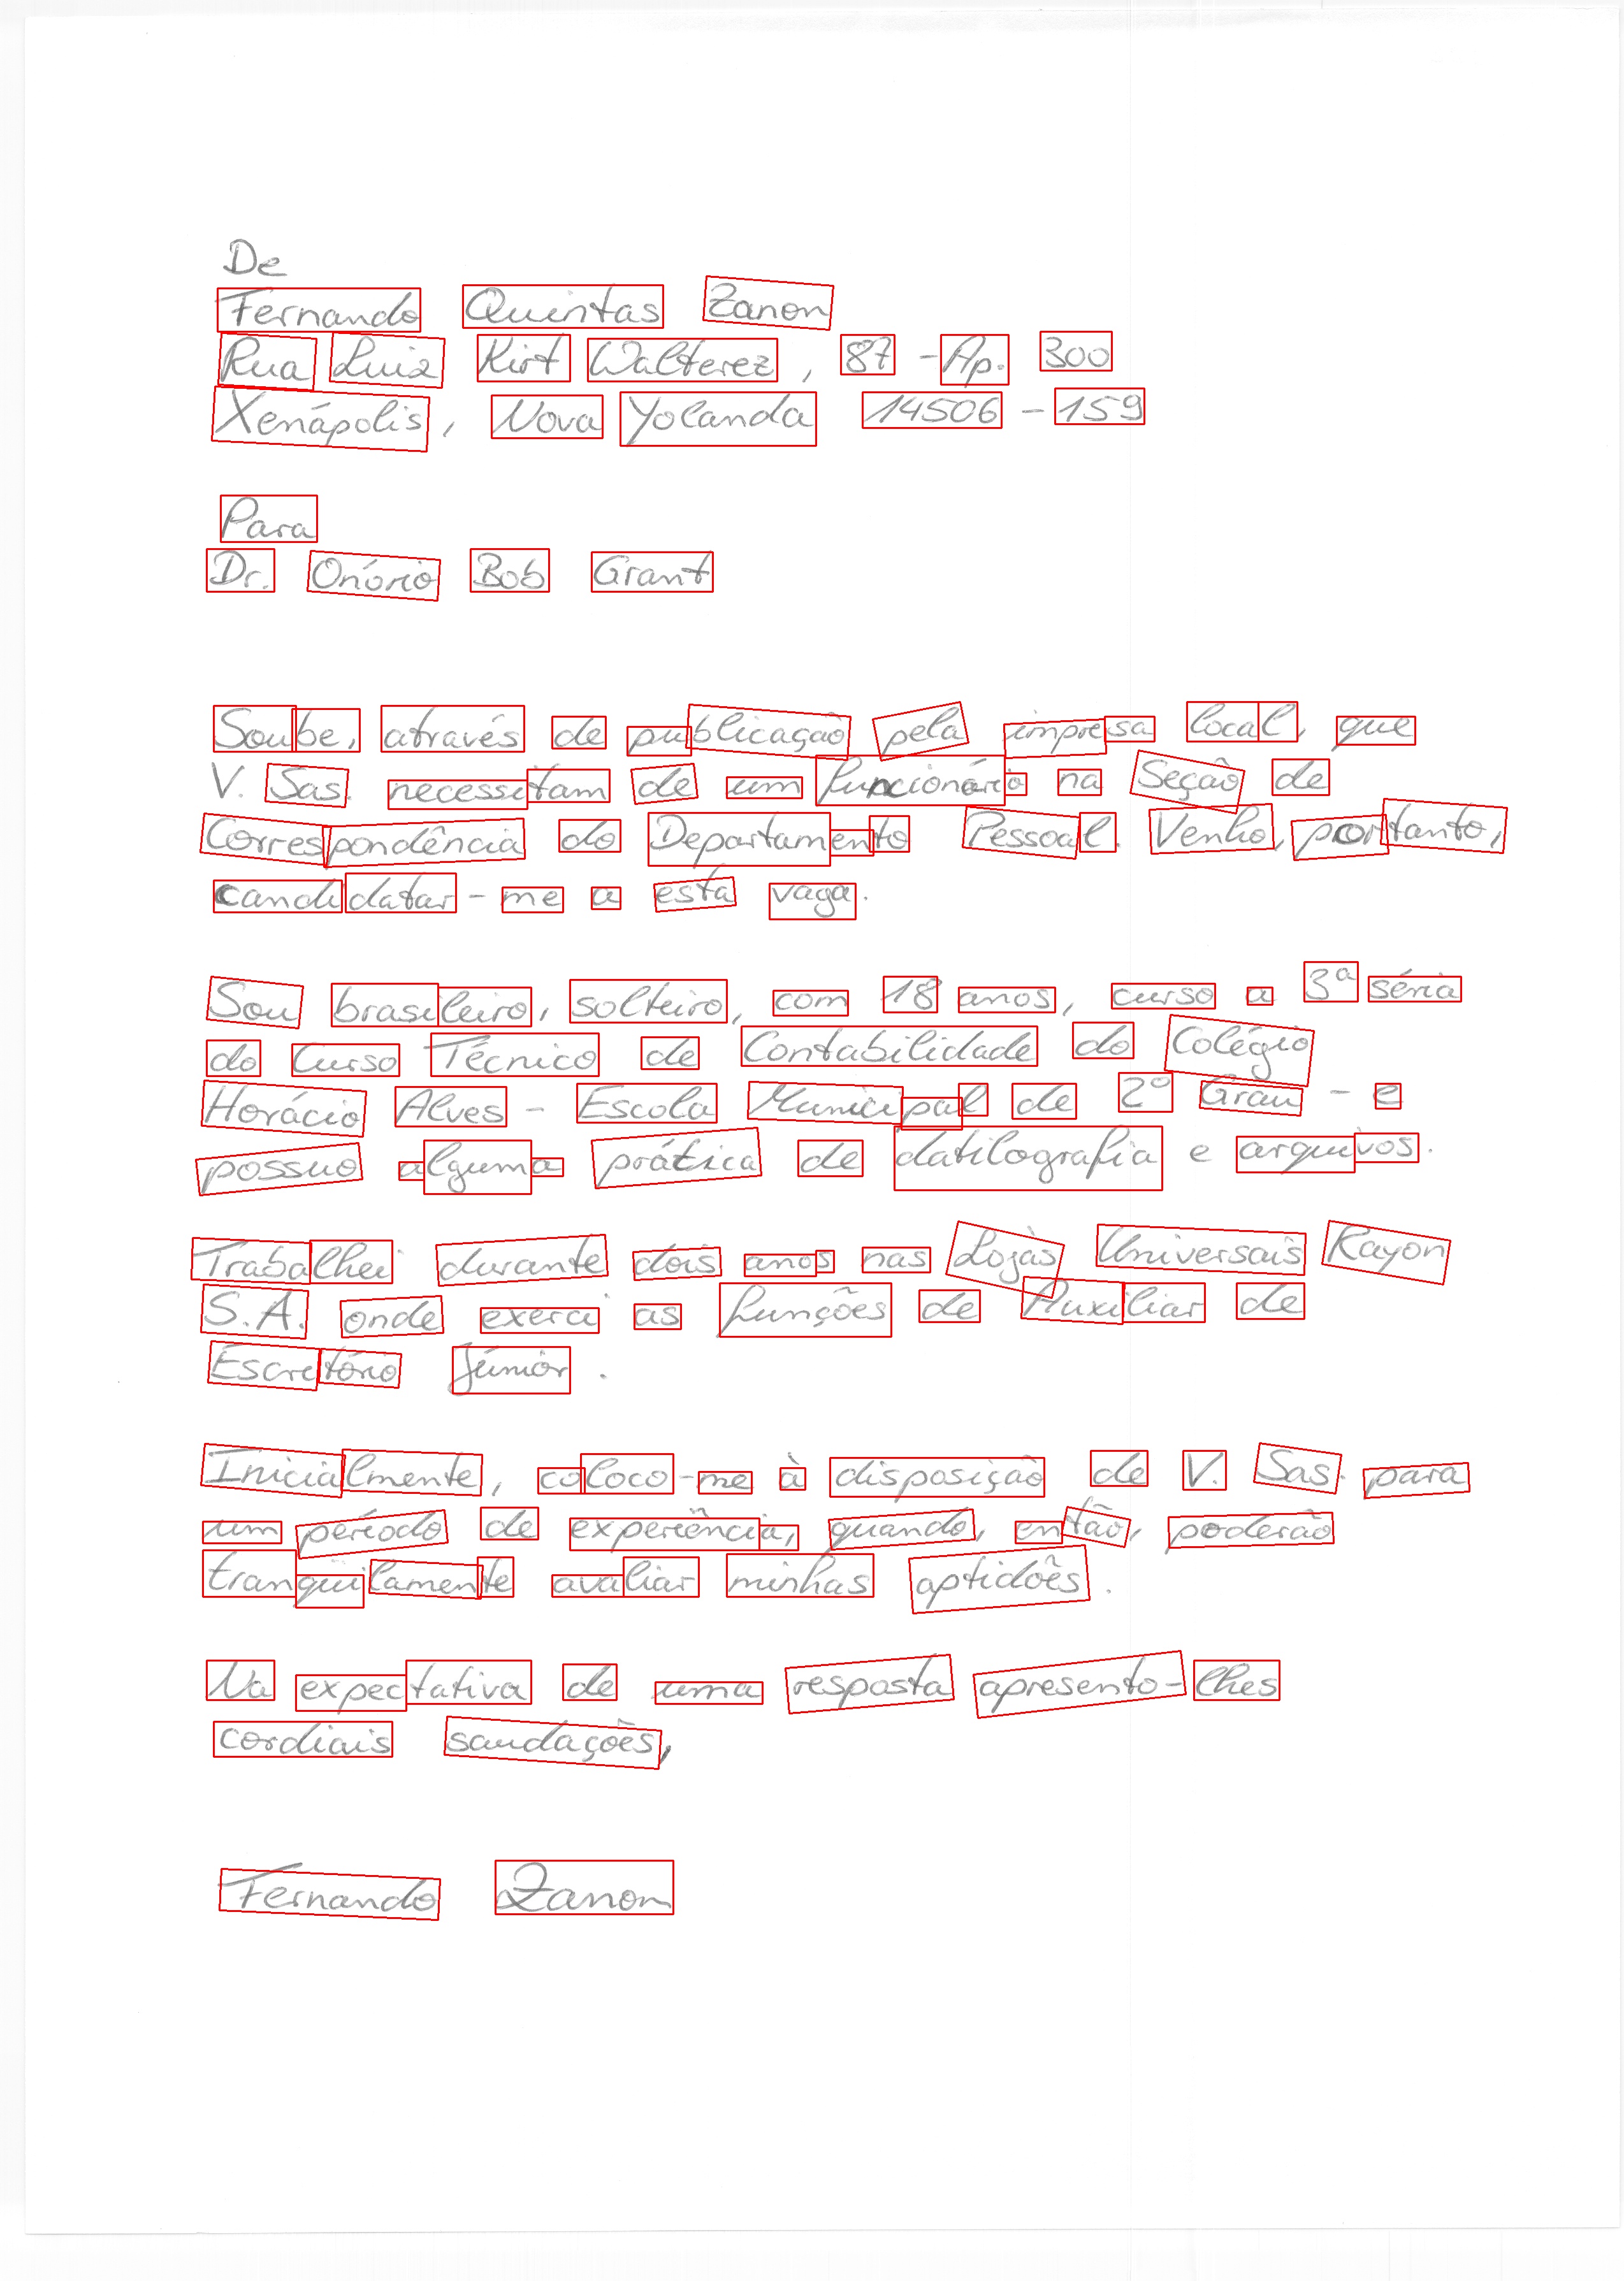 De
Fernando Quintas Zanon
Rua Luiz Kirt Walterez, 87 - Ap. 300
Xenápolis, Nova Yolanda 14506 - 159
Para
Dr. Onório Bob Grant
Soube, através de publicação pela impresa local, que
V. Sas. necessitam de um funcionário na Seção de
Correspondência do Departamento Pessoal. Venho, portanto,
candidatar-me a esta vaga.
Sou brasileiro, solteiro, com 18 anos, curso a 3ª séria
do Curso Técnico de Contabilidade do Colégio
Horácio Alves - Escola Municipal de 2º Grau - e
possuo alguma prática de datilografia e arquivos.
Trabalhei durante dois anos nas Lojas Universais Rayon
S.A. onde exerci as funções de Auxiliar de
Escretório Júnior.
Inicialmente, coloco-me à disposição de V. Sas. para
um período de experiência, quando, então, poderão
tranqüilamente avaliar minhas aptidões.
Na expectativa de uma resposta apresento-lhes
cordiais saudações,
Fernando Zanon